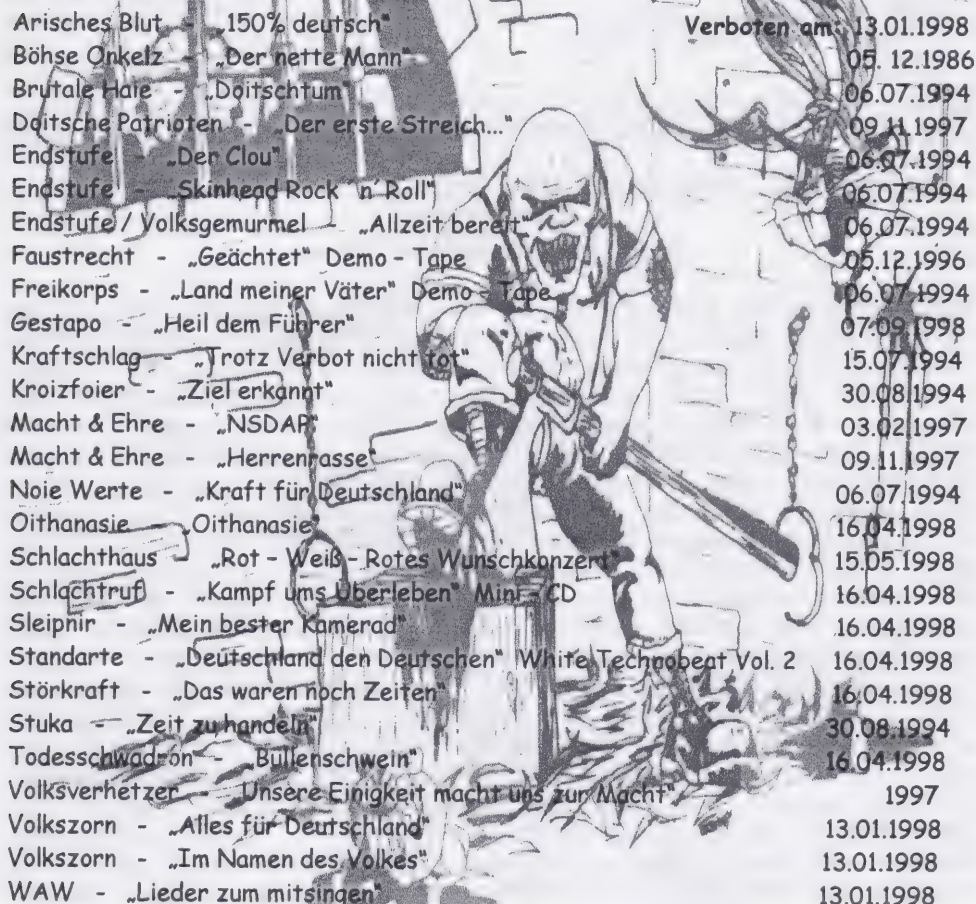 Arisches Blut - „150% deutsch“ Verboten am: 13.01.1998
Böhse Onkelz - „Der nette Mann“ 05. 12.1986
Brutale Haie - „Doitschtum“ 06.07.1994
Doitsche Patrioten - „Der erste Streich...“ 09.11.1997
Endstufe - „Der Clou“ 06.07.1994
Endstufe - „Skinhead Rock ´n´ Roll“ 06.07.1994
Endstufe / Volksgemurmel - „Allzeit bereit“ 06.07.1994
Faustrecht - „Geächtet“ Demo - Tape 05.12.1996
Freikorps - „Land meiner Väter“ Demo - Tape 06.07.1994
Gestapo - „Heil dem Führer“ 07.09.1998
Kraftschlag - „Trotz Verbot nicht tot“ 15.07.1994
Kroizfoier - „Ziel erkannt“ 30.08.1994
Macht & Ehre - „NSDAP“ 03.02.1997
Macht & Ehre - „Herrenrasse“ 09.11.1997
Noie Werte - „Kraft für Deutschland“ 06.07.1994
Oithanasie - „Oithanasie“ 16.04.1998
Schlachthaus - „Rot - Weiß - Rotes Wunschkonzert“ 15.05.1998
Schlachtruf - „Kampf ums Überleben“ Mini - CD 16.04.1998
Sleipnir - „Mein bester Kamerad“ 16.04.1998
Standarte - „Deutschland den Deutschen“ White Technobeat Vol. 2 16.04.1998
Störkraft - „Das waren noch Zeiten“ 16.04.1998
Stuka - „Zeit zu handeln“ 30.08.1994
Todesschwadron - „Bullenschwein“ 16.04.1998
Volksverhetzer - „Unsere Einigkeit macht uns zur Macht“ 1997
Volkszorn - „Alles für Deutschland“ 13.01.1998
Volkszorn - „Im Namen des Volkes“ 13.01.1998
WAW - „Lieder zum mitsingen“ 13.01.1998